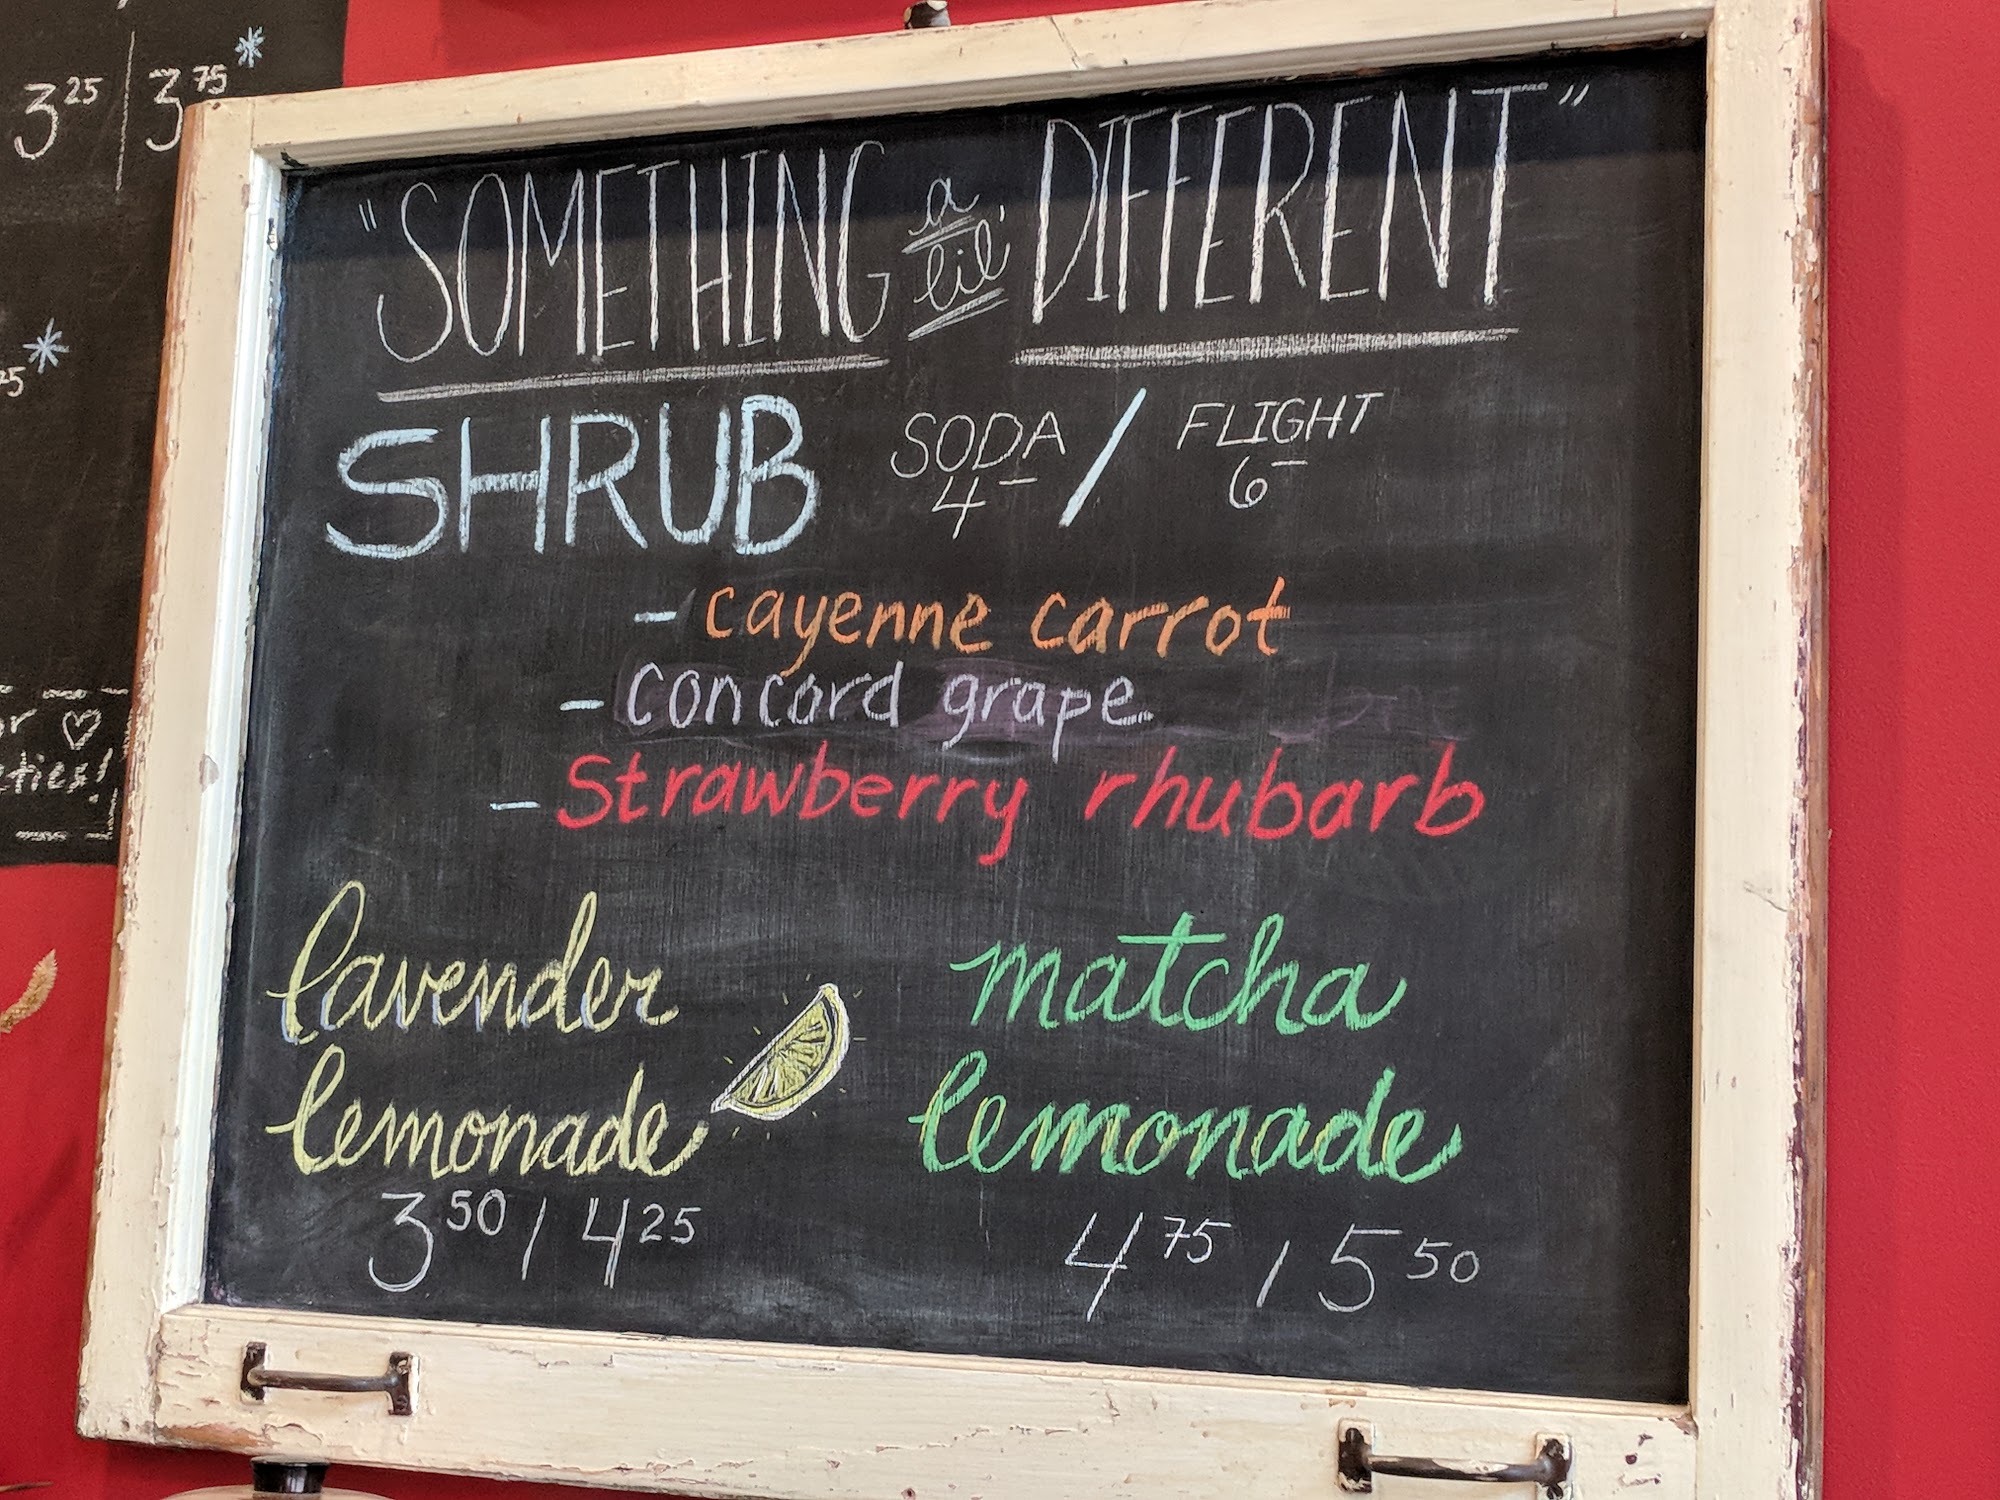 3 25 | 3 75 *
75 *
or ♡
eties!
"SOMETHING a lil' DIFFERENT"
SHRUB SODA 4- / FLIGHT 6-
- cayenne carrot
- concord grape
- Strawberry rhubarb
lavender
lemonade
3 50 / 4 25
matcha
lemonade
4 75 / 5 50